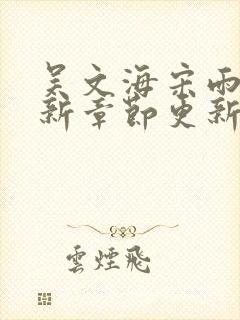 吴文海宋雨
新章节更新
雲煙飛